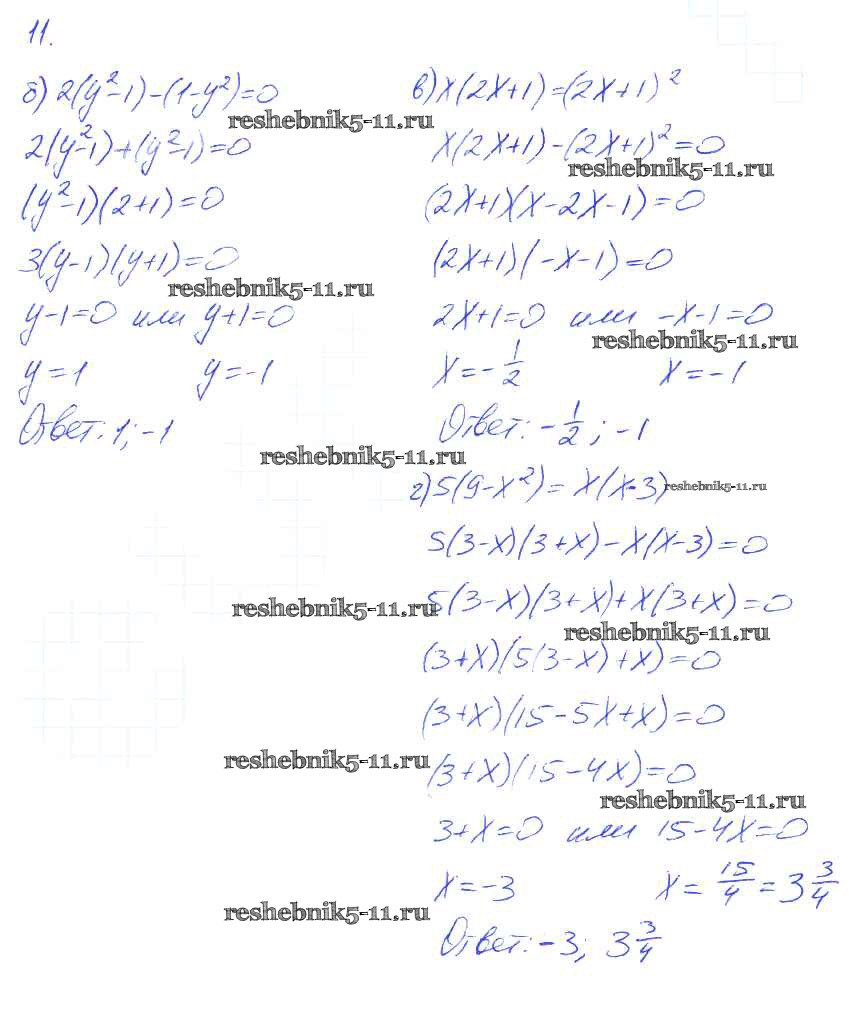 11.
б) 2(y²-1)-(1-y²)=0
reshebnik5-11.ru
2(y²-1)+(y²-1)=0
(y²-1)(2+1)=0
3(y-1)(y+1)=0
reshebnik5-11.ru
y-1=0 или y+1=0
y=1 y=-1
Ответ: 1; -1
reshebnik5-11.ru
в) x(2x+1)=(2x+1)²
x(2x+1)-(2x+1)²=0
reshebnik5-11.ru
(2x+1)(x-2x-1)=0
(2x+1)(-x-1)=0
2x+1=0 или -x-1=0
reshebnik5-11.ru
x=-1/2 x=-1
Ответ: -1/2; -1
г) 5(9-x²)=x(x-3) reshebnik5-11.ru
5(3-x)(3+x)-x(x-3)=0
reshebnik5-11.ru 5(3-x)(3+x)+x(3+x)=0
reshebnik5-11.ru
(3+x)(5(3-x)+x)=0
(3+x)(15-5x+x)=0
reshebnik5-11.ru (3+x)(15-4x)=0
reshebnik5-11.ru
3+x=0 или 15-4x=0
x=-3 x=15/4=3 3/4
reshebnik5-11.ru
Ответ: -3; 3 3/4